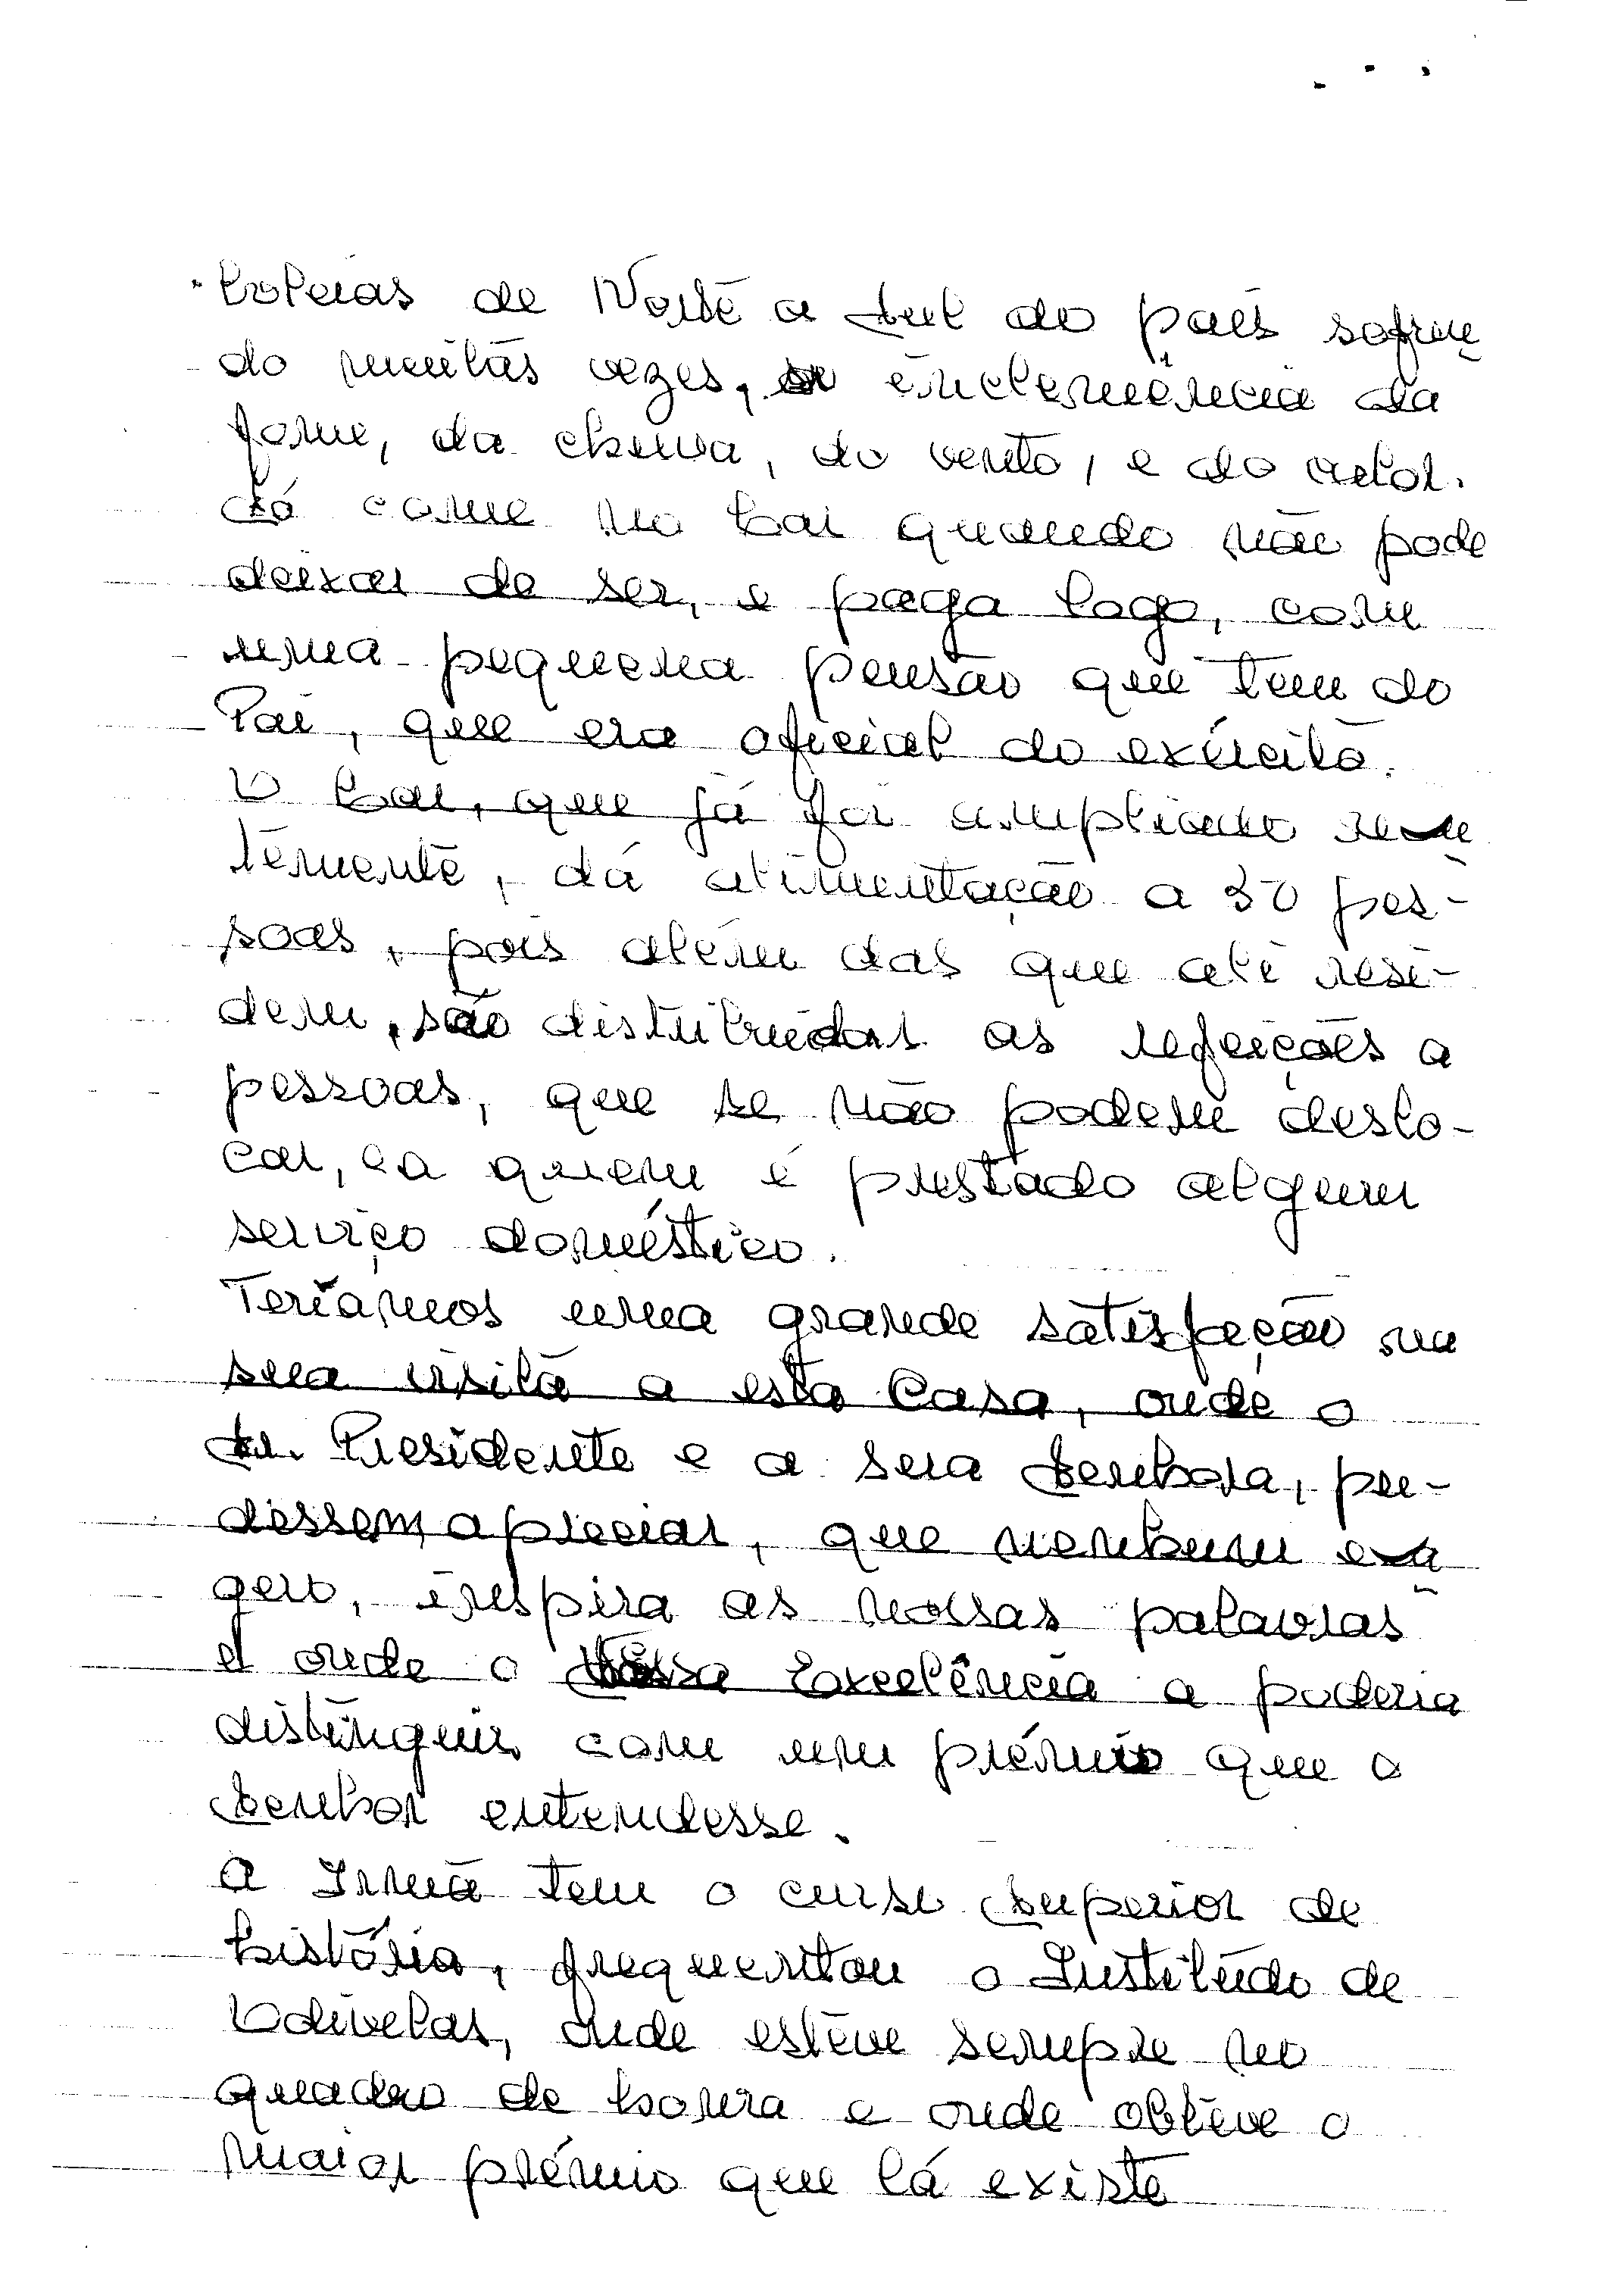 loteias de Norte a Sul do país sofren
do muitas vezes, a inclemência da
fome, da chuva, do vento, e do calor.
Só come no Lar quando não pode
deixar de ser, e paga logo, com
uma pequena pensão que tem do
Pai, que era oficial do exército.
O Lar, que já foi ampliado
temente, dá alimentação a 50 pes-
soas, pois além das que ali resi-
dem, são distribuidas as refeições a
pessoas, que se não podem deslo-
car, e a quem é prestado algum
serviço doméstico.
Teriamos uma grande satisfação na
sua visita a esta Casa, onde o
Sr. Presidente e a sua Senhora, pu-
dessem apreciar, que nenhum exa
gero, inspira as nossas palavras
e onde o Vossa Excelência a poderia
distinguir com um prémio que o
Senhor entendesse.
A Irmã tem o curso Superior de
história, frequentou o Instituto de
Odivelas, onde esteve sempre no
quadro de honra e onde obteve o
maior prémio que lá existe